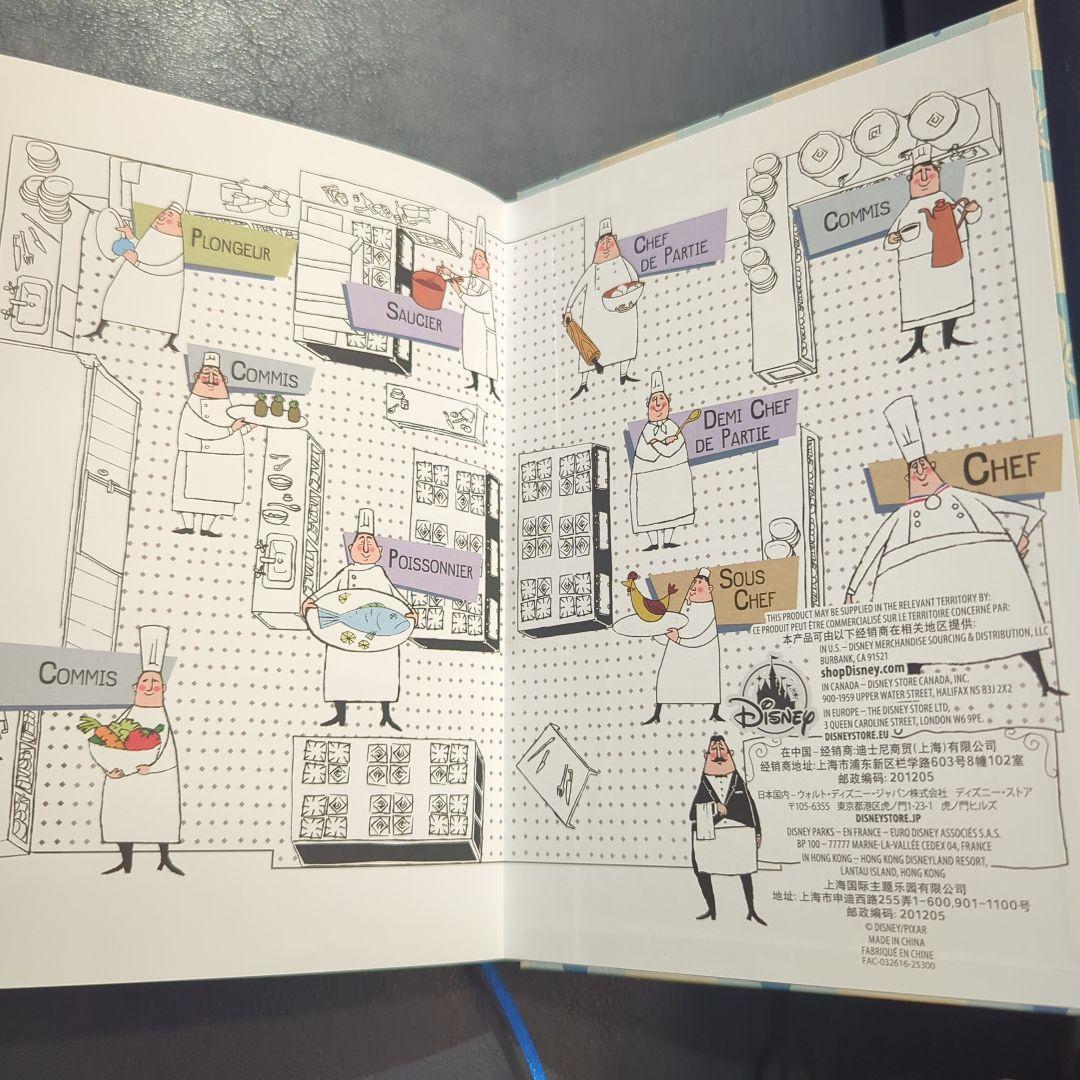 PLONGEUR
SAUCIER
COMMIS
POISSONNIER
COMMIS
CHEF
DE PARTIE
COMMIS
DEMI CHEF
DE PARTIE
CHEF
SOUS
CHEF
THIS PRODUCT MAY BE SUPPLIED IN THE RELEVANT TERRITORY BY:
CE PRODUIT PEUT ÊTRE COMMERCIALISÉ SUR LE TERRITOIRE CONCERNÉ PAR:
本产品可由以下经销商在相关地区提供:
IN U.S. – DISNEY MERCHANDISE SOURCING & DISTRIBUTION, LLC
BURBANK, CA 91521
shopDisney.com
IN CANADA – DISNEY STORE CANADA, INC.
900-1959 UPPER WATER STREET, HALIFAX NS B3J 2X2
Disney
IN EUROPE – THE DISNEY STORE LTD,
3 QUEEN CAROLINE STREET, LONDON W6 9PE.
DISNEYSTORE.EU
在中国–经销商:迪士尼商贸(上海)有限公司
经销商地址:上海市浦东新区栏学路603号8幢102室
邮政编码: 201205
日本国内–ウォルト・ディズニー・ジャパン株式会社 ディズニー・ストア
〒105-6355 東京都港区虎ノ門1-23-1 虎ノ門ヒルズ
DISNEYSTORE.JP
DISNEY PARKS – EN FRANCE – EURO DISNEY ASSOCIÉS S.A.S.
BP 100 – 77777 MARNE-LA-VALLÉE CEDEX 04, FRANCE
IN HONG KONG – HONG KONG DISNEYLAND RESORT,
LANTAU ISLAND, HONG KONG
上海国际主题乐园有限公司
地址: 上海市申迪西路255弄1-600,901-1100号
邮政编码: 201205
© DISNEY/PIXAR
MADE IN CHINA
FABRIQUÉ EN CHINE
FAC-032616-25300